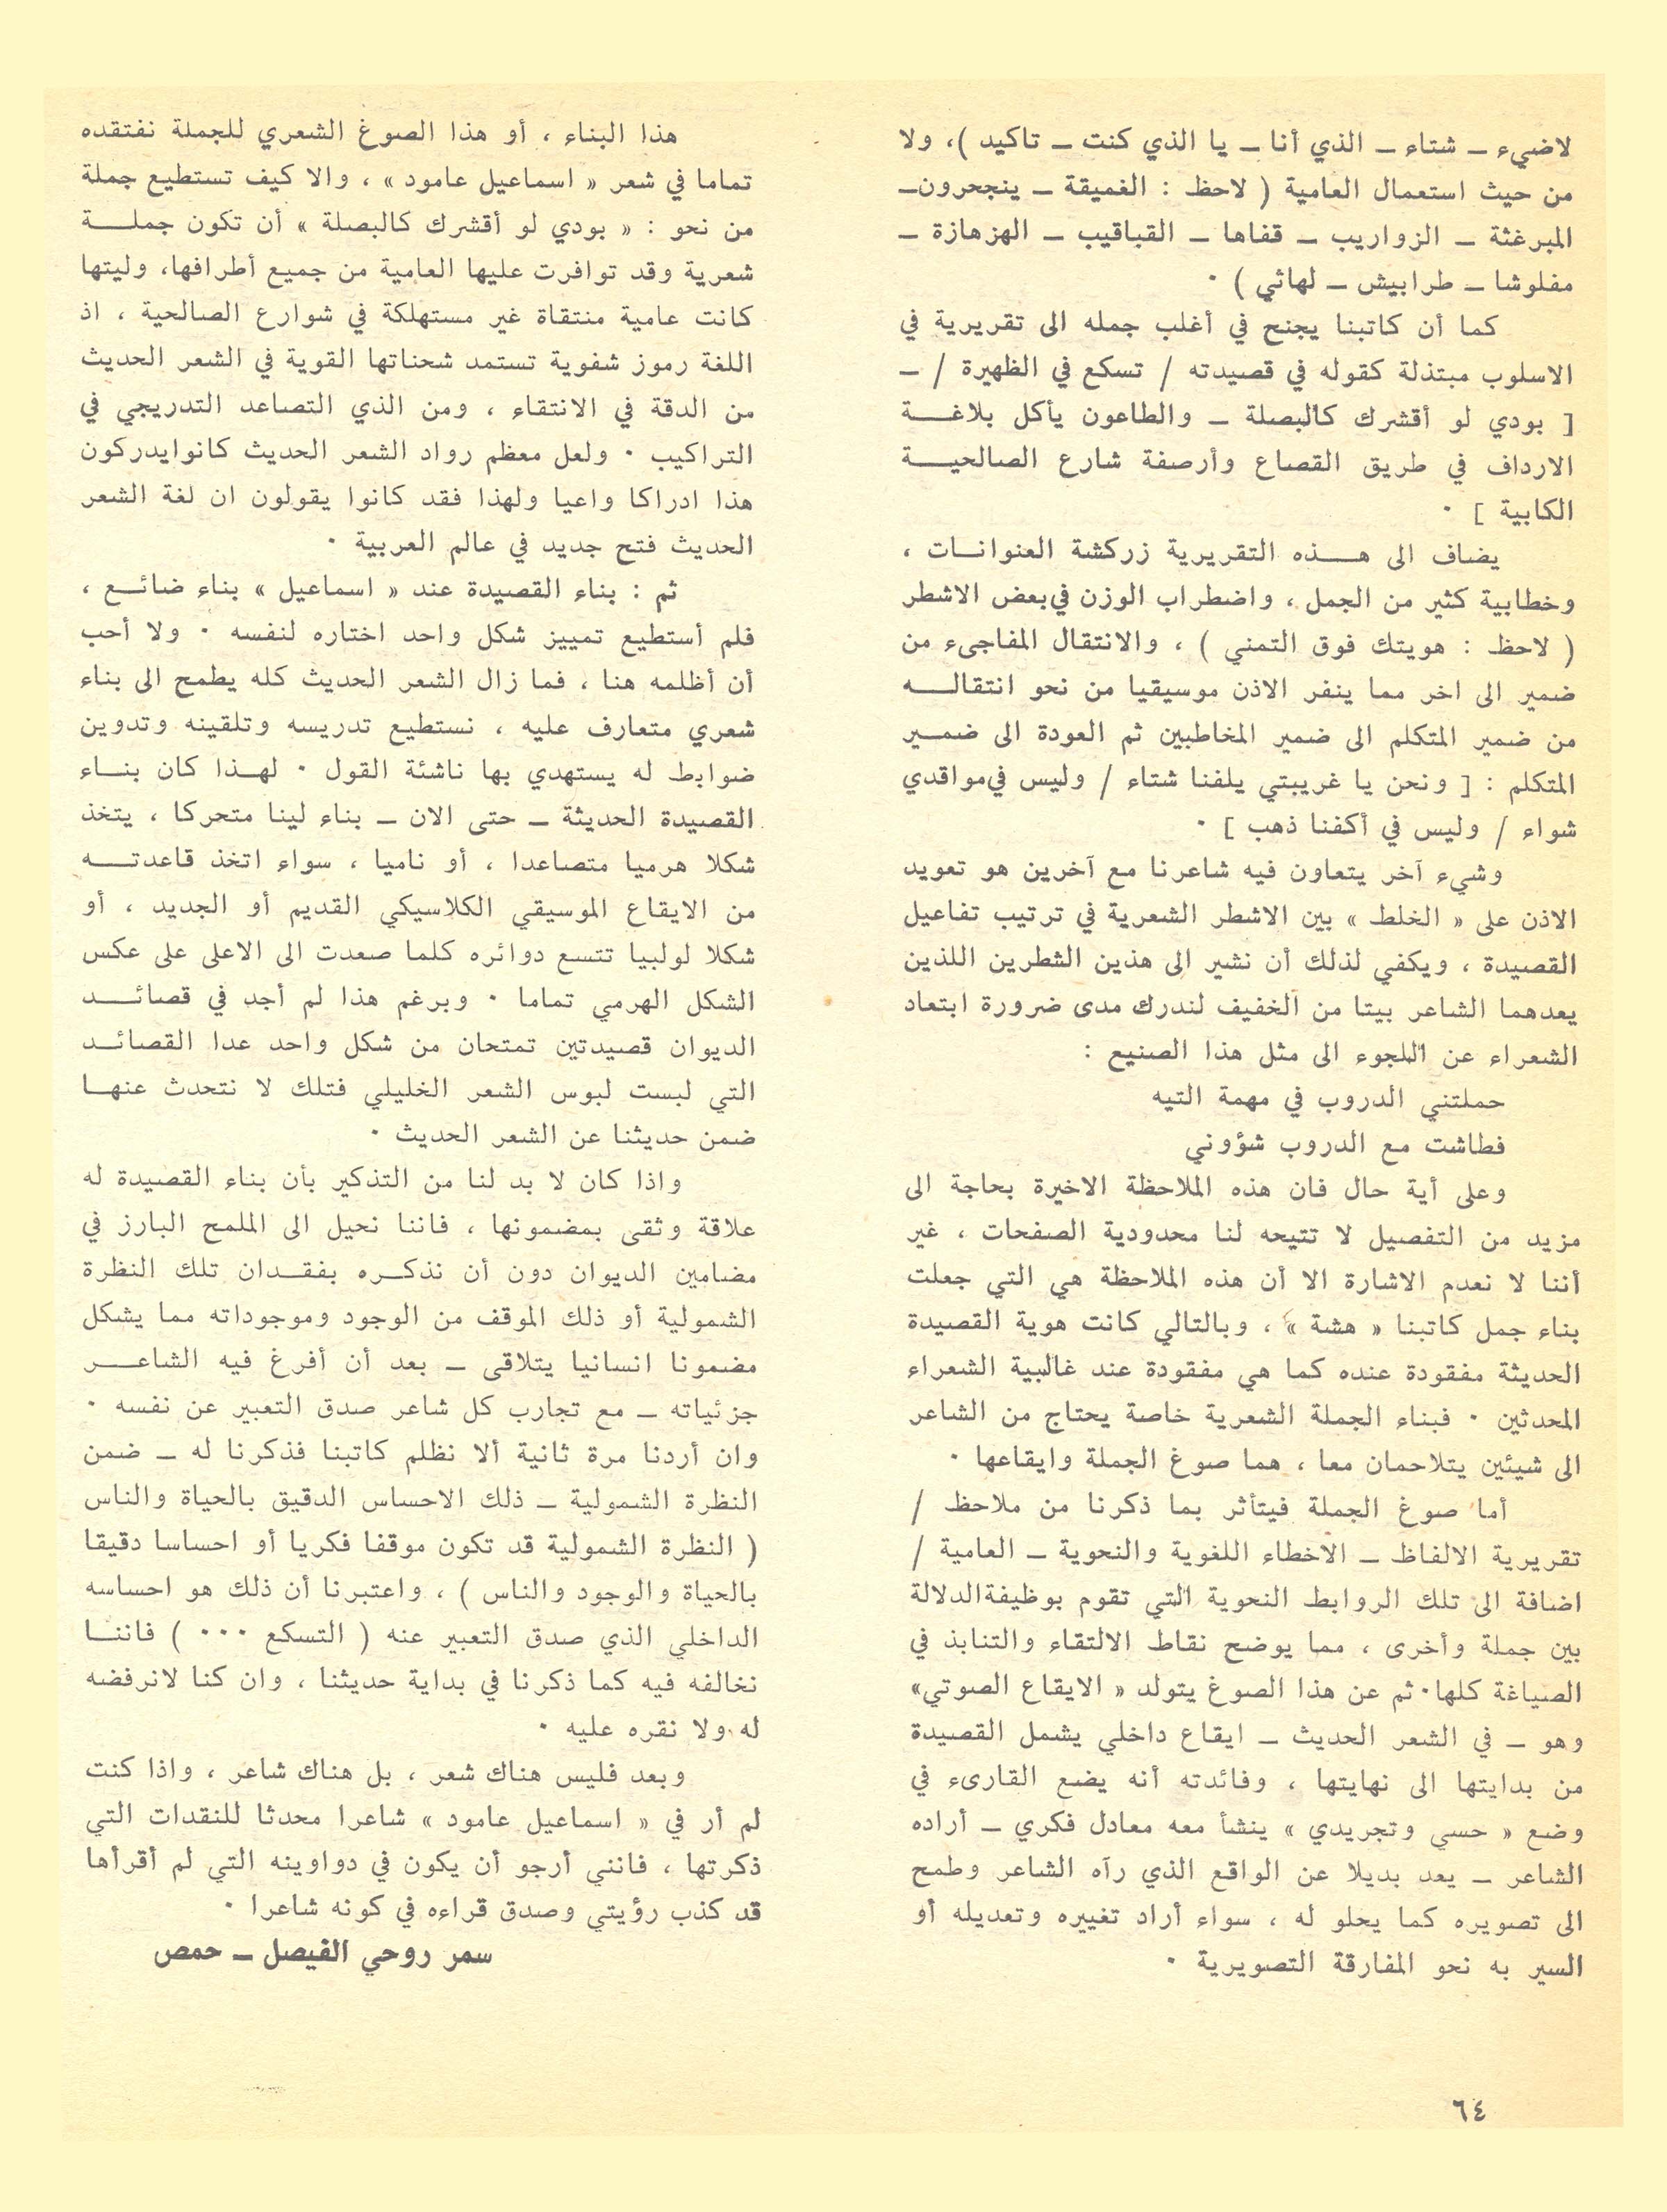 لاضيء ــ شتاء ــ الذي أنا ــ يا الذي كنت ــ تاكيد )، ولا
من حيث استعمال العامية ( لاحظ : الغميقة ــ ينجحرون ــ
المبرغثة ــ الزواريب ــ قفاها ــ القباقيب ــ الهزهازة ــ
مفلوشا ــ طرابيش ــ لهاثي ) ٠
كما أن كاتبنا يجنح في أغلب جمله الى تقريرية في
الاسلوب مبتذلة كقوله في قصيدته / تسكع في الظهيرة / ــ
[ بودي لو أقشرك كالبصلة ــ والطاعون يأكل بلاغة
الارداف في طريق القصاع وأرصفة شارع الصالحية
الكابية ] ٠
يضاف الى هذه التقريرية زركشة العنوانات ،
وخطابية كثير من الجمل ، واضطراب الوزن في بعض الاشطر
( لاحظ : هويتك فوق التمني ) ، والانتقال المفاجىء من
ضمير الى اخر مما ينفر الاذن موسيقيا من نحو انتقاله
من ضمير المتكلم الى ضمير المخاطبين ثم العودة الى ضمير
المتكلم : [ ونحن يا غريبتي يلفنا شتاء / وليس في مواقدي
شواء / وليس في أكفنا ذهب ] ٠
وشيء آخر يتعاون فيه شاعرنا مع آخرين هو تعويد
الاذن على « الخلط » بين الاشطر الشعرية في ترتيب تفاعيل
القصيدة ، ويكفي لذلك أن نشير الى هذين الشطرين اللذين
يعدهما الشاعر بيتا من الخفيف لندرك مدى ضرورة ابتعاد
الشعراء عن اللجوء الى مثل هذا الصنيع :
حملتني الدروب في مهمة التيه
فطاشت مع الدروب شؤوني
وعلى أية حال فان هذه الملاحظة الاخيرة بحاجة الى
مزيد من التفصيل لا تتيحه لنا محدودية الصفحات ، غير
أننا لا نعدم الاشارة الا أن هذه الملاحظة هي التي جعلت
بناء جمل كاتبنا « هشة » ، وبالتالي كانت هوية القصيدة
الحديثة مفقودة عنده كما هي مفقودة عند غالبية الشعراء
المحدثين ٠ فبناء الجملة الشعرية خاصة يحتاج من الشاعر
الى شيئين يتلاحمان معا ، هما صوغ الجملة وايقاعها ٠
أما صوغ الجملة فيتأثر بما ذكرنا من ملاحظ /
تقريرية الالفاظ ــ الاخطاء اللغوية والنحوية ــ العامية /
اضافة الى تلك الروابط النحوية التي تقوم بوظيفة الدلالة
بين جملة وأخرى ، مما يوضح نقاط الالتقاء والتنابذ في
الصياغة كلها ٠ ثم عن هذا الصوغ يتولد « الايقاع الصوتي»
وهو ــ في الشعر الحديث ــ ايقاع داخلي يشمل القصيدة
من بدايتها الى نهايتها ، وفائدته أنه يضع القارىء في
وضع « حسي وتجريدي » ينشأ معه معادل فكري ــ أراده
الشاعر ــ يعد بديلا عن الواقع الذي رآه الشاعر وطمح
الى تصويره كما يحلو له ، سواء أراد تغييره وتعديله أو
السير به نحو المفارقة التصويرية ٠
هذا البناء ، أو هذا الصوغ الشعري للجملة نفتقده
تماما في شعر « اسماعيل عامود » ، والا كيف تستطيع جملة
من نحو : « بودي لو أقشرك كالبصلة » أن تكون جملة
شعرية وقد توافرت عليها العامية من جميع أطرافها، وليتها
كانت عامية منتقاة غير مستهلكة في شوارع الصالحية ، اذ
اللغة رموز شفوية تستمد شحناتها القوية في الشعر الحديث
من الدقة في الانتقاء ، ومن الذي التصاعد التدريجي في
التراكيب ٠ ولعل معظم رواد الشعر الحديث كانوا يدركون
هذا ادراكا واعيا ولهذا فقد كانوا يقولون ان لغة الشعر
الحديث فتح جديد في عالم العربية ٠
ثم : بناء القصيدة عند « اسماعيل » بناء ضائع ،
فلم أستطيع تمييز شكل واحد اختاره لنفسه ٠ ولا أحب
أن أظلمه هنا ، فما زال الشعر الحديث كله يطمح الى بناء
شعري متعارف عليه ، نستطيع تدريسه وتلقينه وتدوين
ضوابط له يستهدي بها ناشئة القول ٠ لهذا كان بناء
القصيدة الحديثة ــ حتى الان ــ بناء لينا متحركا ، يتخذ
شكلا هرميا متصاعدا ، أو ناميا ، سواء اتخذ قاعدته
من الايقاع الموسيقي الكلاسيكي القديم أو الجديد ، أو
شكلا لولبيا تتسع دوائره كلما صعدت الى الاعلى على عكس
الشكل الهرمي تماما ٠ وبرغم هذا لم أجد في قصائد
الديوان قصيدتين تمتحان من شكل واحد عدا القصائد
التي لبست لبوس الشعر الخليلي فتلك لا نتحدث عنها
ضمن حديثنا عن الشعر الحديث ٠
واذا كان لا بد لنا من التذكير بأن بناء القصيدة له
علاقة وثقى بمضمونها ، فاننا نحيل الى الملمح البارز في
مضامين الديوان دون أن نذكره بفقدان تلك النظرة
الشمولية أو ذلك الموقف من الوجود وموجوداته مما يشكل
مضمونا انسانيا يتلاقى ــ بعد أن أفرغ فيه الشاعر
جزئياته ــ مع تجارب كل شاعر صدق التعبير عن نفسه ٠
وان أردنا مرة ثانية ألا نظلم كاتبنا فذكرنا له ــ ضمن
النظرة الشمولية ــ ذلك الاحساس الدقيق بالحياة والناس
( النظرة الشمولية قد تكون موقفا فكريا أو احساسا دقيقا
بالحياة والوجود والناس ) ، واعتبرنا أن ذلك هو احساسه
الداخلي الذي صدق التعبير عنه ( التسكع ٠٠٠ ) فاننا
نخالفه فيه كما ذكرنا في بداية حديثنا ، وان كنا لانرفضه
له ولا نقره عليه ٠
وبعد فليس هناك شعر ، بل هناك شاعر ، واذا كنت
لم أر في « اسماعيل عامود » شاعرا محدثا للنقدات التي
ذكرتها ، فانني أرجو أن يكون في دواوينه التي لم أقرأها
قد كذب رؤيتي وصدق قراءه في كونه شاعرا ٠
سمر روحي الفيصل ــ حمص
٦٤